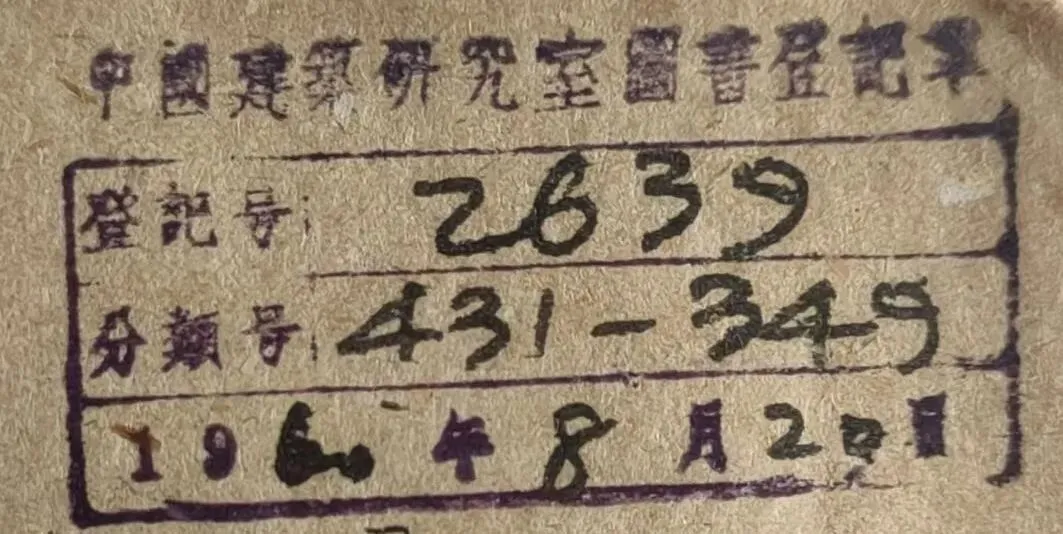 中國建築研究室圖書登記單
登記号 2639
分類号 431-349
1960年8月20日